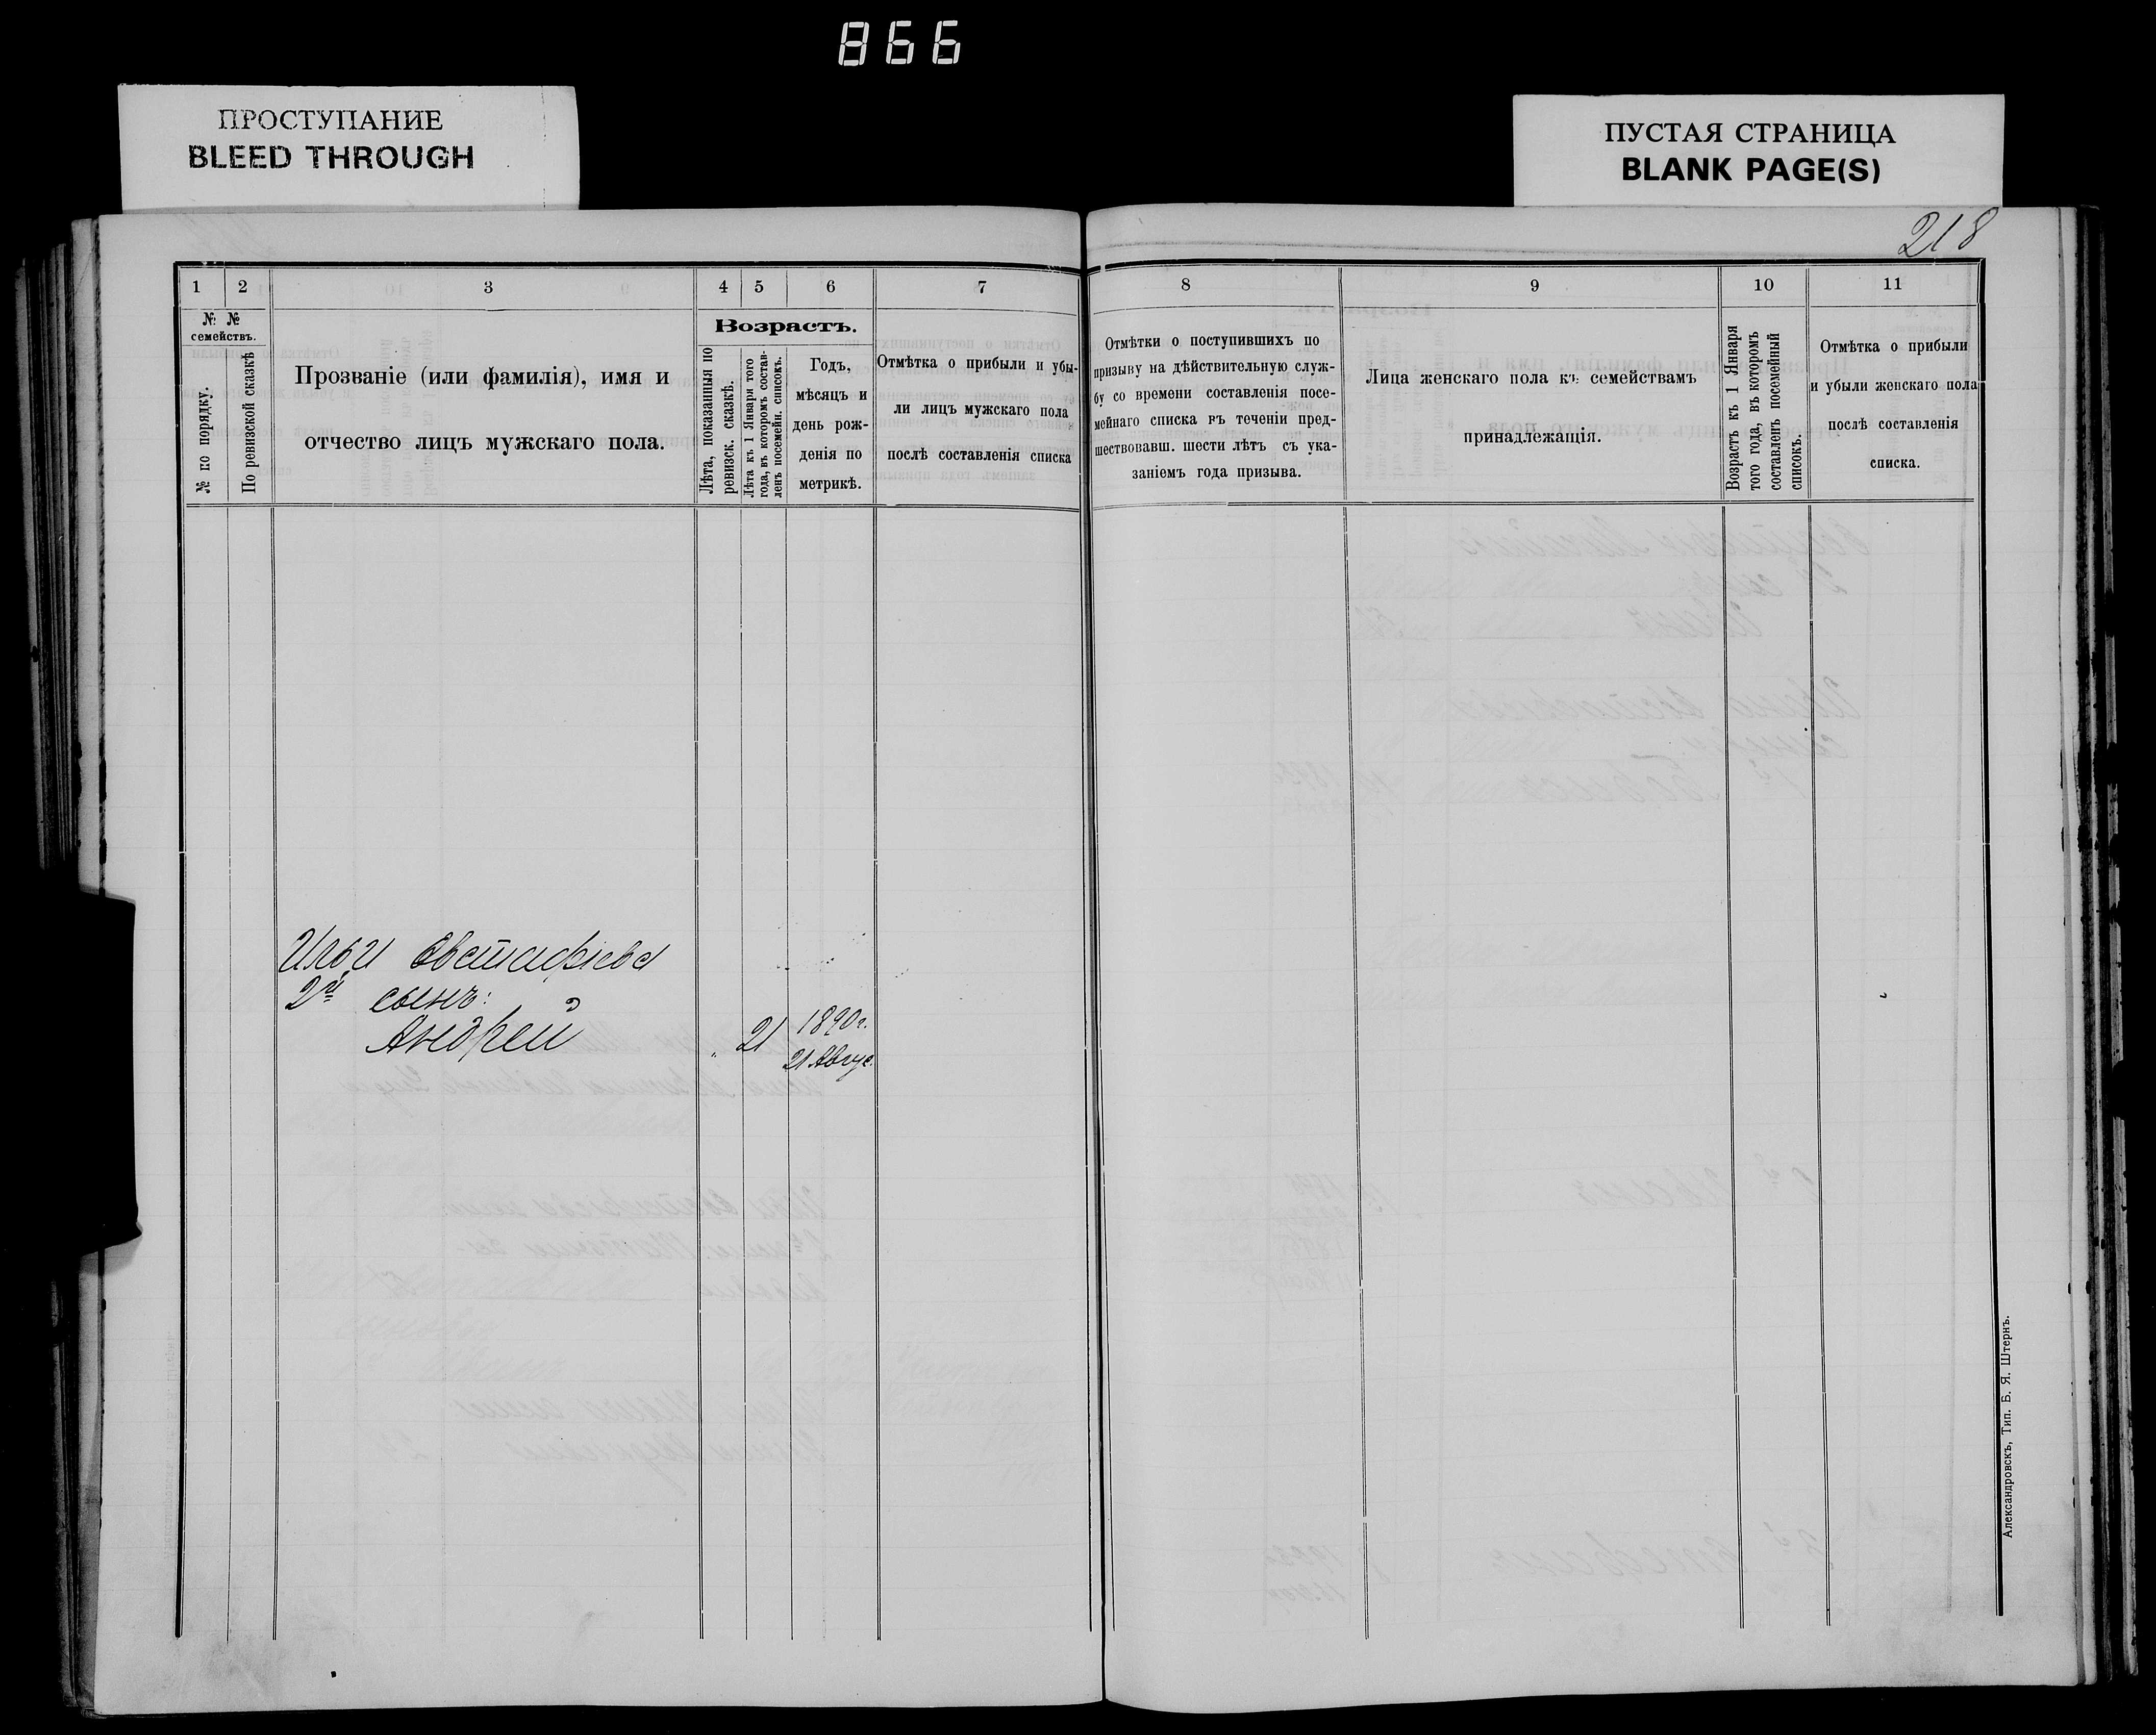 866
ПРОСТУПАНИЕ
BLEED THROUGH
ПУСТАЯ СТРАНИЦА
BLANK PAGE(S)
218
1 2 3 4 5 6 7
№ №
семействъ.
№ по порядку.
По ревизской сказкѣ
Прозваніе (или фамилія), имя и
отчество лицъ мужскаго пола.
Возрастъ.
Лѣта, показанныя по
ревизск. сказкѣ.
Лѣта къ 1 Января того
года, въ которомъ состав-
ленъ посемейн. списокъ.
Годъ,
мѣсяцъ и
день рож-
денія по
метрикѣ.
Отмѣтка о прибыли и убы-
ли лицъ мужскаго пола
послѣ составленія списка
Ильи Евстафіева
2й сынъ:
Андрей " 21 1890г.
21 Авгус.
8 9 10 11
Отмѣтки о поступившихъ по
призыву на дѣйствительную служ-
бу со времени составленія посе-
мейнаго списка въ теченіи пред-
шествовавш. шести лѣтъ съ ука-
заніемъ года призыва.
Лица женскаго пола къ семействамъ
принадлежащія.
Возрастъ къ 1 Января
того года, въ которомъ
составленъ посемейный
списокъ.
Отмѣтка о прибыли
и убыли женскаго пола
послѣ составленія
списка.
Александровскъ, Тип. Б. Я. Штернъ.